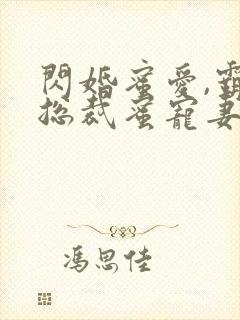 閃婚蜜愛,
總裁蜜寵妻
馮思佳